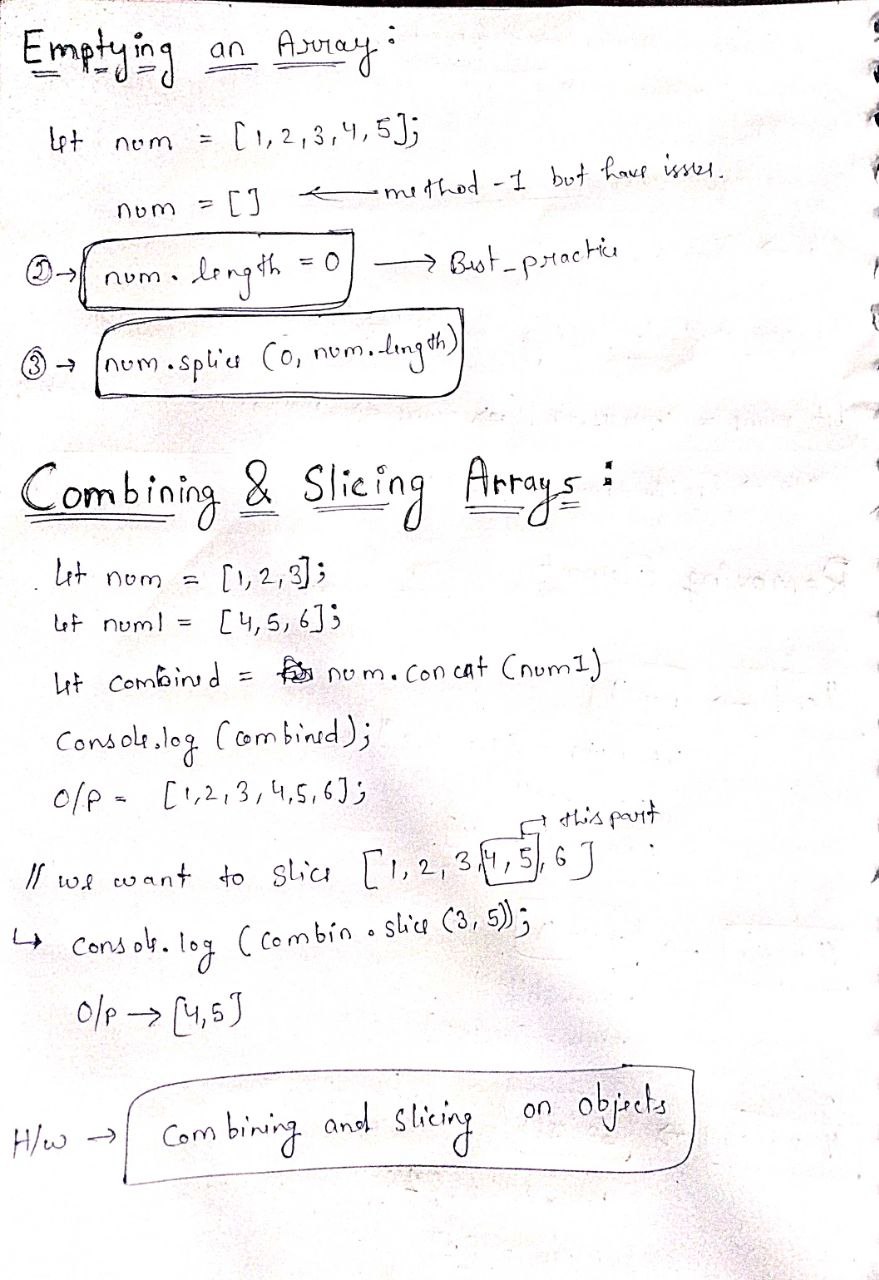 Emptying an Array :
let num = [1, 2, 3, 4, 5];
num = [] ← method - I but have issues.
② → num. length = 0 → Best_practice
③ → num.splice (0, num.length)
Combining & Slicing Arrays :
let num = [1, 2, 3];
let num1 = [4, 5, 6];
let combined = num.concat (num1)
Console.log (combined);
O/P = [1, 2, 3, 4, 5, 6];
→ this part
// we want to slice [1, 2, 3, 4, 5, 6]
↳ console.log (combin.slice (3, 5));
O/P → [4, 5]
H/w → Combining and slicing on objects